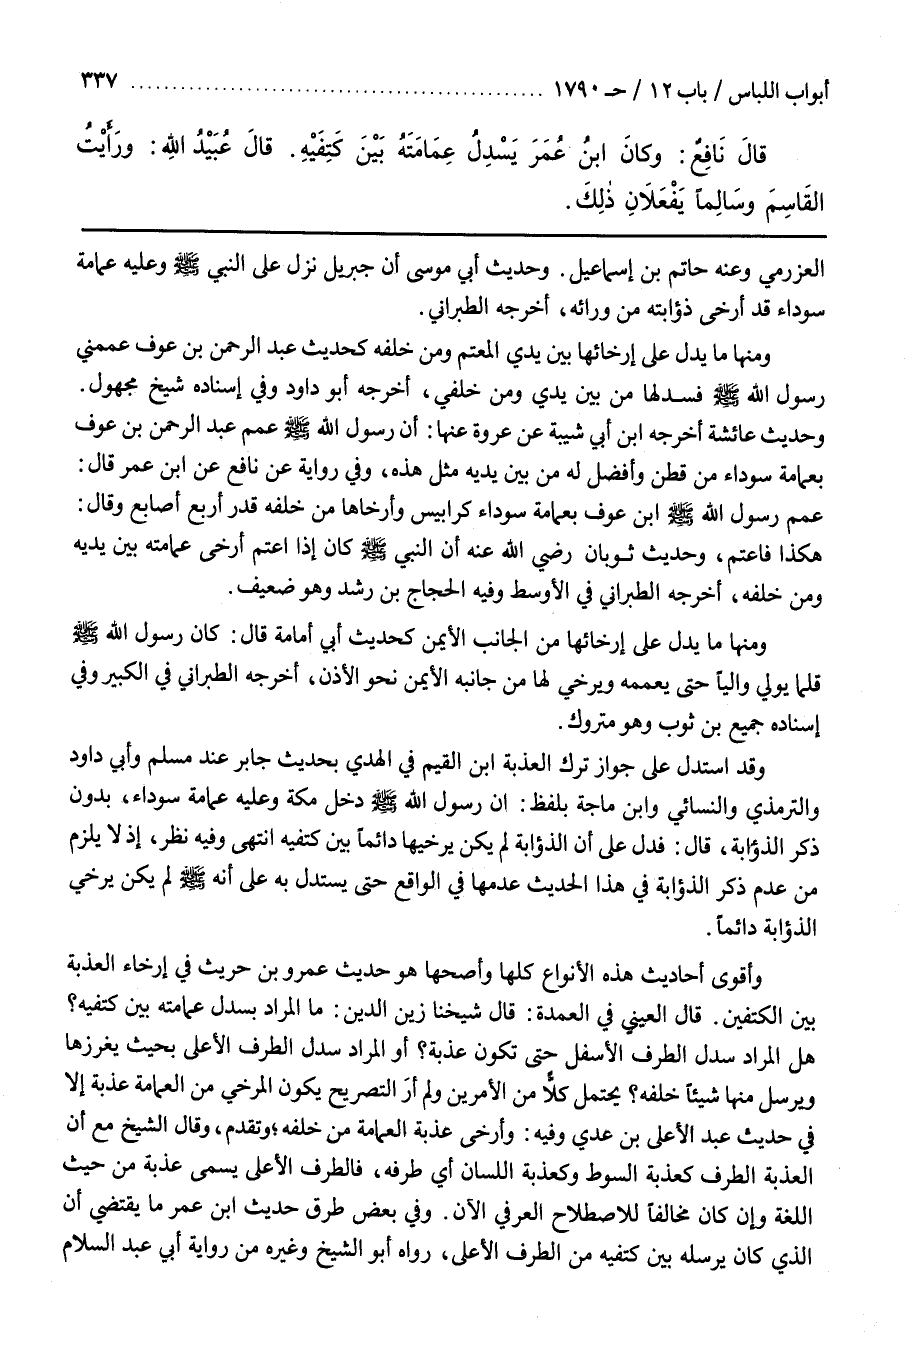 أبواب اللباس / باب ١٢ / حـ ١٧٩٠ ................................................ ٣٣٧
قالَ نَافِعٌ: وكانَ ابنُ عُمَرَ يَسْدِلُ عِمَامَتَهُ بَيْنَ كَتِفَيْهِ. قالَ عُبَيْدُ اللهِ: ورَأَيْتُ
القَاسِمَ وسَالِماً يَفْعَلَانِ ذٰلِكَ.
العزرمي وعنه حاتم بن إسماعيل. وحديث أبي موسى أن جبريل نزل على النبي ﷺ وعليه عمامة
سوداء قد أرخى ذؤابته من ورائه، أخرجه الطبراني.
ومنها ما يدل على إرخائها بين يدي المعتم ومن خلفه كحديث عبد الرحمن بن عوف عممني
رسول الله ﷺ فسدلها من بين يدي ومن خلفي، أخرجه أبو داود وفي إسناده شيخ مجهول.
وحديث عائشة أخرجه ابن أبي شيبة عن عروة عنها: أن رسول الله ﷺ عمم عبد الرحمن بن عوف
بعمامة سوداء من قطن وأفضل له من بين يديه مثل هذه، وفي رواية عن نافع عن ابن عمر قال:
عمم رسول الله ﷺ ابن عوف بعمامة سوداء كرابيس وأرخاها من خلفه قدر أربع أصابع وقال:
هكذا فاعتم، وحديث ثوبان رضي الله عنه أن النبي ﷺ كان إذا اعتم أرخى عمامته بين يديه
ومن خلفه، أخرجه الطبراني في الأوسط وفيه الحجاج بن رشد وهو ضعيف.
ومنها ما يدل على إرخائها من الجانب الأيمن كحديث أبي أمامة قال: كان رسول الله ﷺ
قلما يولي والياً حتى يعممه ويرخي لها من جانبه الأيمن نحو الأذن، أخرجه الطبراني في الكبير وفي
إسناده جميع بن ثوب وهو متروك.
وقد استدل على جواز ترك العذبة ابن القيم في الهدي بحديث جابر عند مسلم وأبي داود
والترمذي والنسائي وابن ماجة بلفظ: ان رسول الله ﷺ دخل مكة وعليه عمامة سوداء، بدون
ذكر الذؤابة، قال: فدل على أن الذؤابة لم يكن يرخيها دائماً بين كتفيه انتهى وفيه نظر، إذ لا يلزم
من عدم ذكر الذؤابة في هذا الحديث عدمها في الواقع حتى يستدل به على أنه ﷺ لم يكن يرخي
الذؤابة دائماً.
وأقوى أحاديث هذه الأنواع كلها وأصحها هو حديث عمرو بن حريث في إرخاء العذبة
بين الكتفين. قال العيني في العمدة: قال شيخنا زين الدين: ما المراد بسدل عمامته بين كتفيه؟
هل المراد سدل الطرف الأسفل حتى تكون عذبة؟ أو المراد سدل الطرف الأعلى بحيث يغرزها
ويرسل منها شيئاً خلفه؟ يحتمل كلًّا من الأمرين ولم أرَ التصريح يكون المرخي من العمامة عذبة إلا
في حديث عبد الأعلى بن عدي وفيه: وأرخى عذبة العمامة من خلفه؛ وتقدم، وقال الشيخ مع أن
العذبة الطرف كعذبة السوط وكعذبة اللسان أي طرفه، فالطرف الأعلى يسمى عذبة من حيث
اللغة وإن كان مخالفاً للاصطلاح العرفي الآن. وفي بعض طرق حديث ابن عمر ما يقتضي أن
الذي كان يرسله بين كتفيه من الطرف الأعلى، رواه أبو الشيخ وغيره من رواية أبي عبد السلام